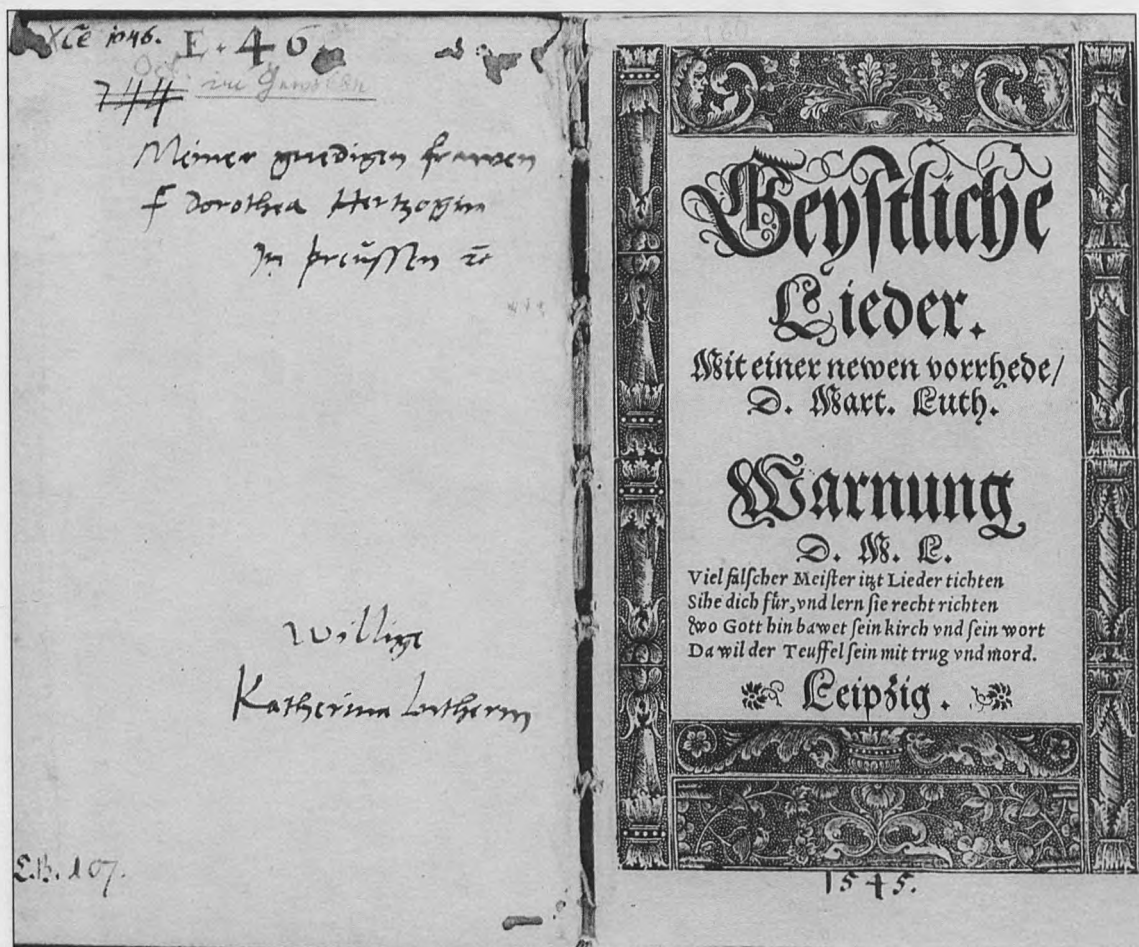 XCe 1046. E. 46
744
Meiner gnedigen frawen
F Dorothea Hertzogin
In preüssen
Willige
Katherina Lutherin
E.B. 107.
Geystliche
Lieder.
Mit einer newen vorrhede/
D. Mart. Luth.
Warnung
D. M. L.
Viel falscher Meister itzt Lieder tichten
Sihe dich für, vnd lern sie recht richten
Wo Gott hin bawet sein kirch vnd sein wort
Da wil der Teuffel sein mit trug vnd mord.
Leipzig.
1545.